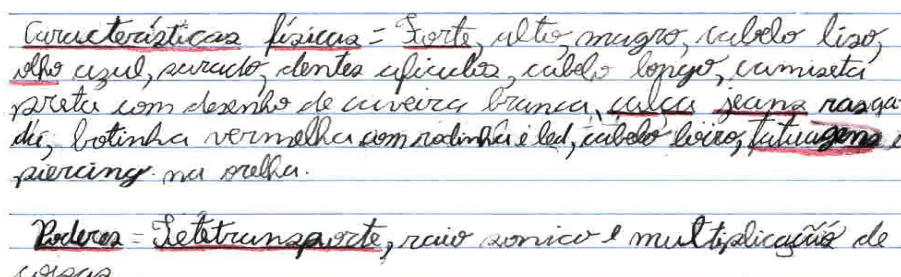 Características físicas = Forte, alto, magro, cabelo liso,
olho azul, sarado, dentes afiados, cabelo longo, camiseta
preta com desenho de caveira branca, calça jeans rasga
da, botinha vermelha com rodinha e led, cabelo loiro, tatuagens e
piercing na orelha.
Poderes = Teletransporte, raio sonico e multiplicação de
coisas